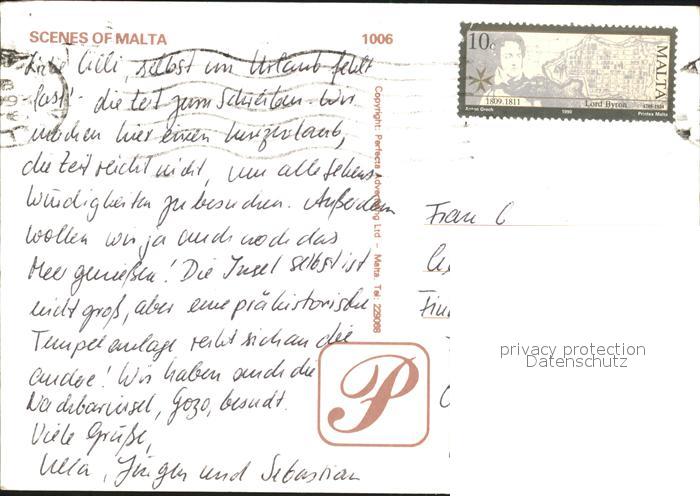 SCENES OF MALTA 1006
Liebe Cilli, selbst im Urlaub fehlt
fast die Zeit zum Schreiben. Wir
machen hier einen Kurzurlaub,
die Zeit reicht nicht, um alle Sehens-
würdigkeiten zu besuchen. Außerdem
wollen wir ja auch noch das
Meer genießen! Die Insel selbst ist
nicht groß, aber eine prähistorische
Tempelanlage reiht sich an die
andere! Wir haben auch die
Nachbarinsel, Gozo, besucht.
Viele Grüße,
Ulla, Jürgen und Sebastian
Copyright: Perfecta Advertising Ltd – Malta. Tel: 229068
P
10c
MALTA
1809.1811
Lord Byron
1788-1824
1990
Printex Malta
Frau C
privacy protection
Datenschutz